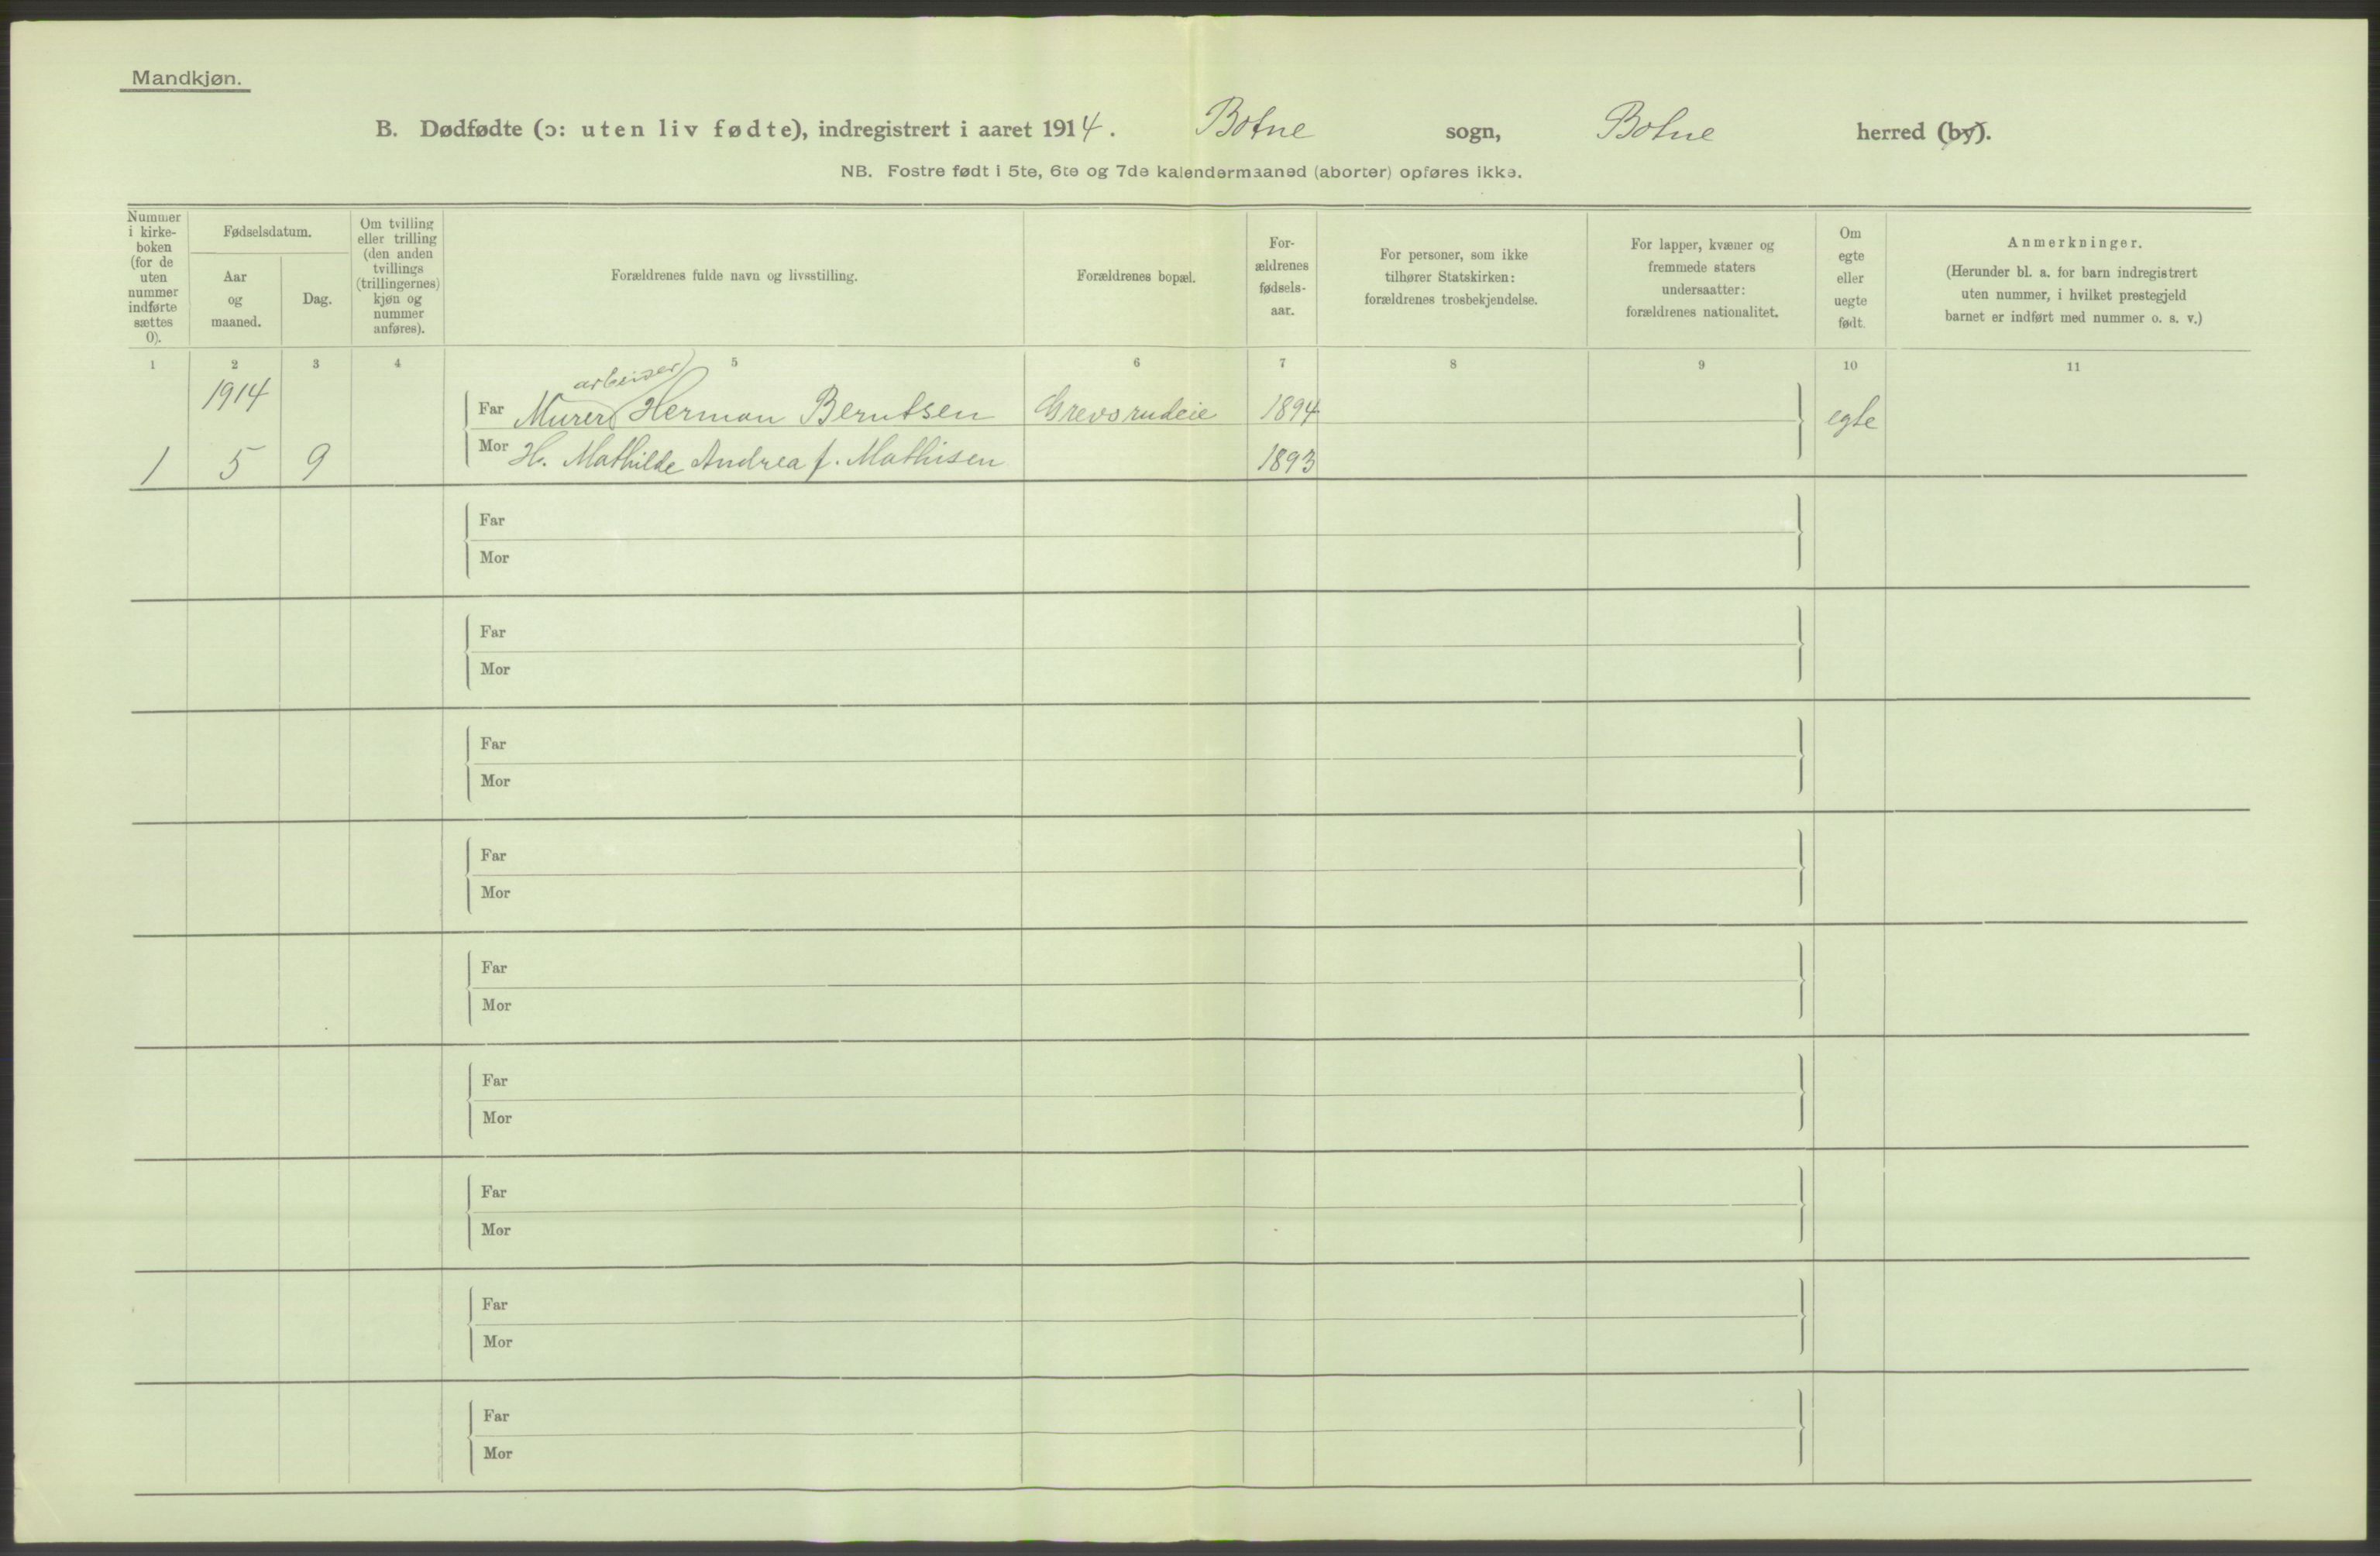 Mandkjøn.
B. Dødfødte (ɔ: uten liv fødte), indregistrert i aaret 1914. Botne sogn, Botne herred (by).
NB. Fostre født i 5te, 6te og 7de kalendermaaned (aborter) opføres ikke.
Nummer
i kirke-
boken
(for de
uten
nummer
indførte
sættes
0).
Fødselsdatum.
Aar
og
maaned.
Dag.
Om tvilling
eller trilling
(den anden
tvillings
(trillingernes)
kjøn og
nummer
anføres).
Forældrenes fulde navn og livsstilling.
Forældrenes bopæl.
For-
ældrenes
fødsels-
aar.
For personer, som ikke
tilhører Statskirken:
forældrenes trosbekjendelse.
For lapper, kvæner og
fremmede staters
undersaatter:
forældrenes nationalitet.
Om
egte
eller
uegte
født.
Anmerkninger.
(Herunder bl. a. for barn indregistrert
uten nummer, i hvilket prestegjeld
barnet er indført med nummer o. s. v.)
1 2 3 4 5 6 7 8 9 10 11
arbeider
1914
Far Murer Herman Berntsen 1894 egte
1 5 9 Mor H. Mathilde Andrea f. Mathisen 1893
Far
Mor
Far
Mor
Far
Mor
Far
Mor
Far
Mor
Far
Mor
Far
Mor
Far
Mor
Far
Mor